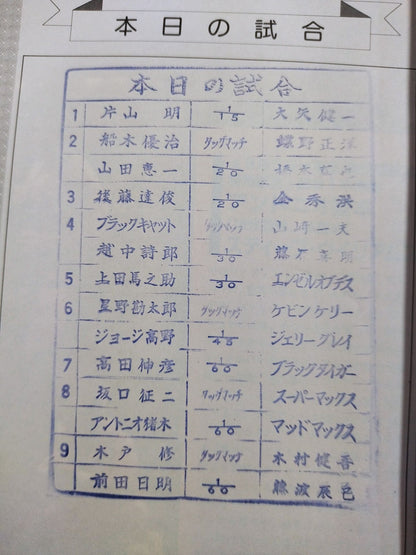 本日の試合
本日の試合
1 片山 明 1/15 大矢健一
2 船木優治 タッグマッチ 蝶野正洋
山田恵一 1/20
3 後藤達俊 1/20 金秀洪
4 ブラックキャット タッグマッチ 山崎一夫
越中詩郎 1/30 藤原喜明
5 上田馬之助 1/30 エンビルオブデス
6 星野勘太郎 タッグマッチ ケビンケリー
ジョージ高野 1/45 ジェリーグレイ
7 高田伸彦 1/60 ブラックタイガー
8 坂口征二 タッグマッチ スーパーマックス
アントニオ猪木 1/60 マッドマックス
9 木戸 修 タッグマッチ 木村健吾
前田日明 1/60 藤波辰巳